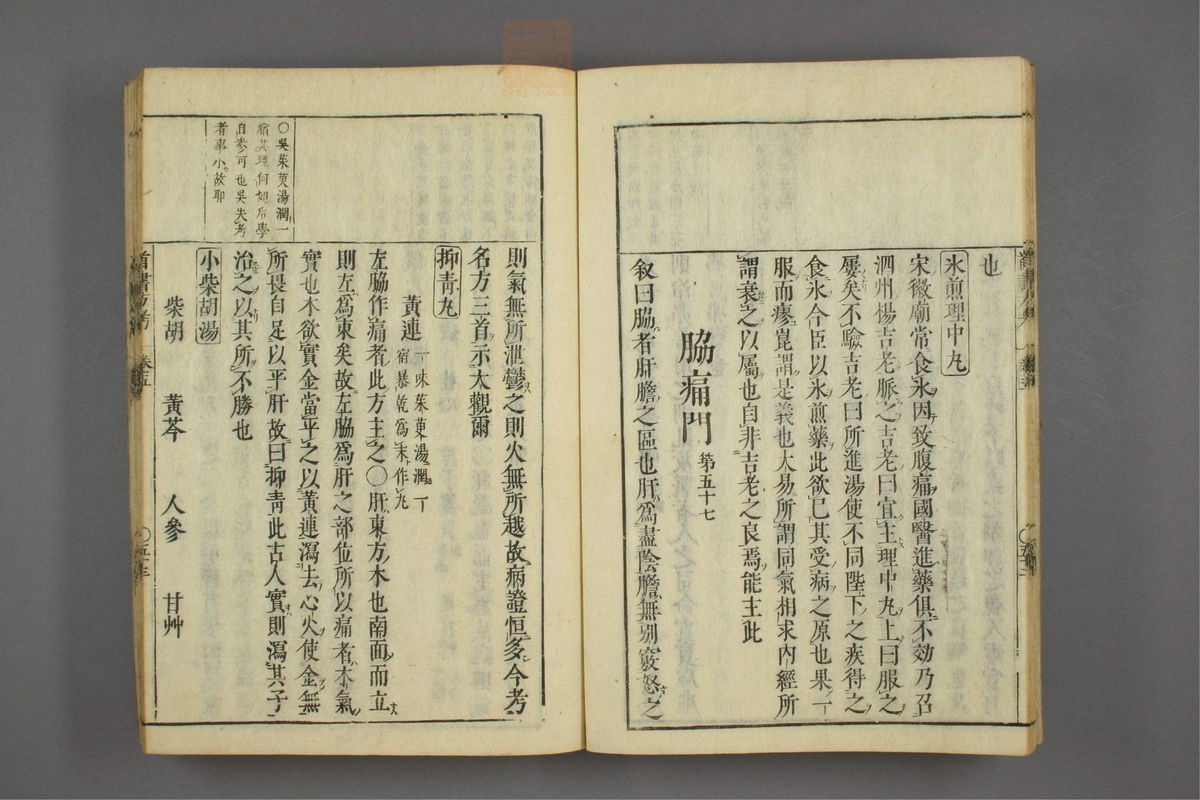 也
氷煎理中丸
宋徽廟常食氷因致腹痛國醫進藥俱不効乃召
泗州楊吉老脈之吉老曰宜主理中丸上曰服之
屢矣不驗吉老曰所進湯使不同陛下之疾得之
食氷今臣以氷煎藥此欲已其受病之原也果一
服而瘳崑謂是義也大易所謂同氣相求內經所
謂衰之以屬也自非吉老之良焉能主此
脇痛門 第五十七
叙曰脇者肝膽之區也肝爲盡陰膽無別竅怒之
則氣無所泄鬱之則火無所越故病證恒多今考
名方三首示大觀爾
抑青丸
黃連 一味茱萸湯潤一
宿暴乾爲末作丸
左脇作痛者此方主之○肝東方木也南面而立
則左爲東矣故左脇爲肝之部位所以痛者木氣
實也木欲實金當平之以黃連瀉去心火使金無
所畏自足以平肝故曰抑青此古人實則瀉其子
治之以其所不勝也
小柴胡湯
柴胡 黃芩 人參 甘艸
○吳茱萸湯潤一
宿其理何如后學
自參可也吳失考
者事小故耶
首書方考 卷五